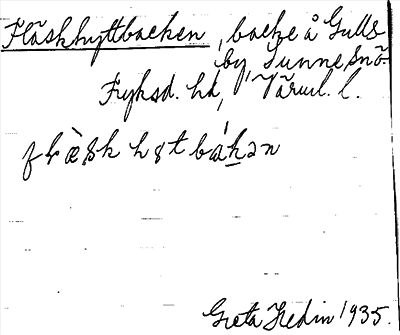 Fläskhyttbacken, backe å Gulls
by, Sunne sn
Fryksd. hd, Värml. l.
Greta Hedin 1935.